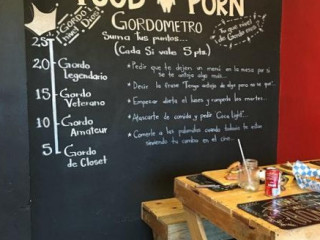 FOOD PORN
GORDOMETRO
Suma tus puntos...
(Cada Si vale 5 pts.)
Gordo
nivel Dios
25
20 Gordo
Legendario
15 Gordo
Veterano
10 Gordo
Amateur
5 Gordo
de Closet
* Pedir que te dejen un menú en la mesa por si
se te antoja algo más...
* Decir la frase "Tengo antojo de algo pero no se que"...
* Empezar dieta el lunes y romperla los martes...
* Atascarte de comida y pedir Coca Light...
* Comerle a tus palomitas cuando todavía te estan
siendo tu cambio en el cine...
Tu que nivel
de Gordo eres?